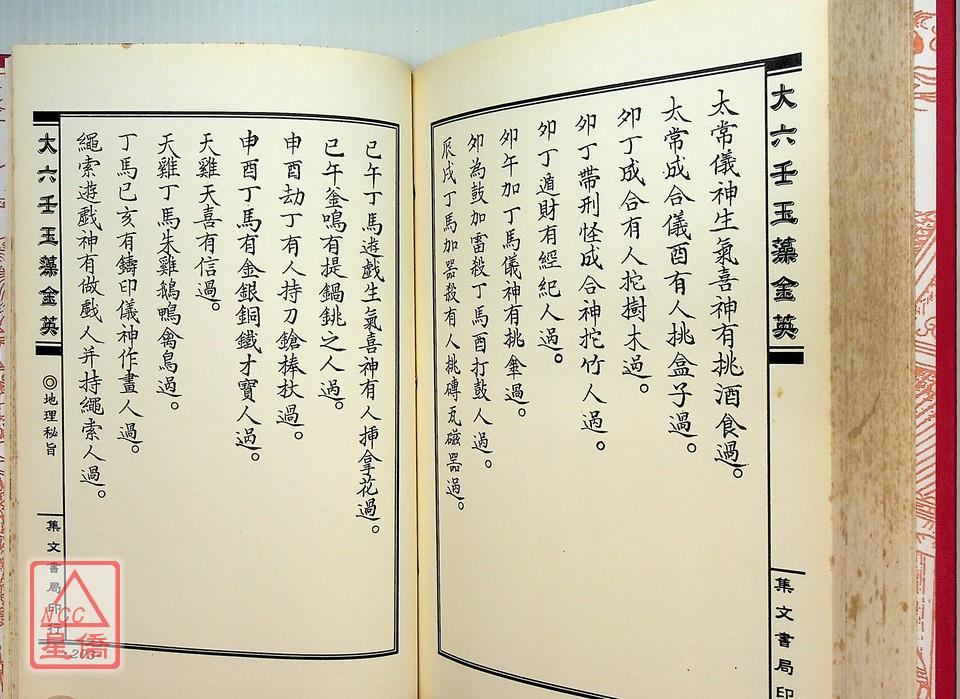 大六壬玉藻金英
集文書局印
太常儀神生氣喜神有挑酒食過。
太常成合儀酉有人挑盒子過。
夘丁成合有人挖樹木過。
夘丁帶刑怪成合神挖竹人過。
夘丁遁財有經紀人過。
夘午加丁馬儀神有挑傘過。
夘為鼓加雷殺丁馬酉打鼓人過。
辰戌丁馬加器殺有人挑磚瓦磁器過。
巳午丁馬遊戲生氣喜神有人揷拿花過。
巳午釜鳴有提鍋銚之人過。
申酉劫丁有人持刀鎗棒杖過。
申酉丁馬有金銀銅鐵才寶人過。
天雞天喜有信過。
天雞丁馬朱雞鵝鴨禽鳥過。
丁馬巳亥有鑄印儀神作畫人過。
繩索遊戲神有做戲人并持繩索人過。
大六壬玉藻金英
◎地理秘旨
集文書局印行
203
NCC
星僑